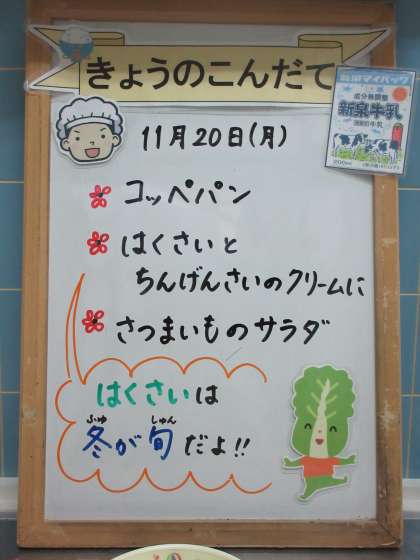 きょうのこんだて
成分無調整
11月20日(月)
コッペパン
はくさいと
ちんげんさいのクリームに
さつまいものサラダ
はくさいは
冬が旬だよ!!
ふゆ しゅん